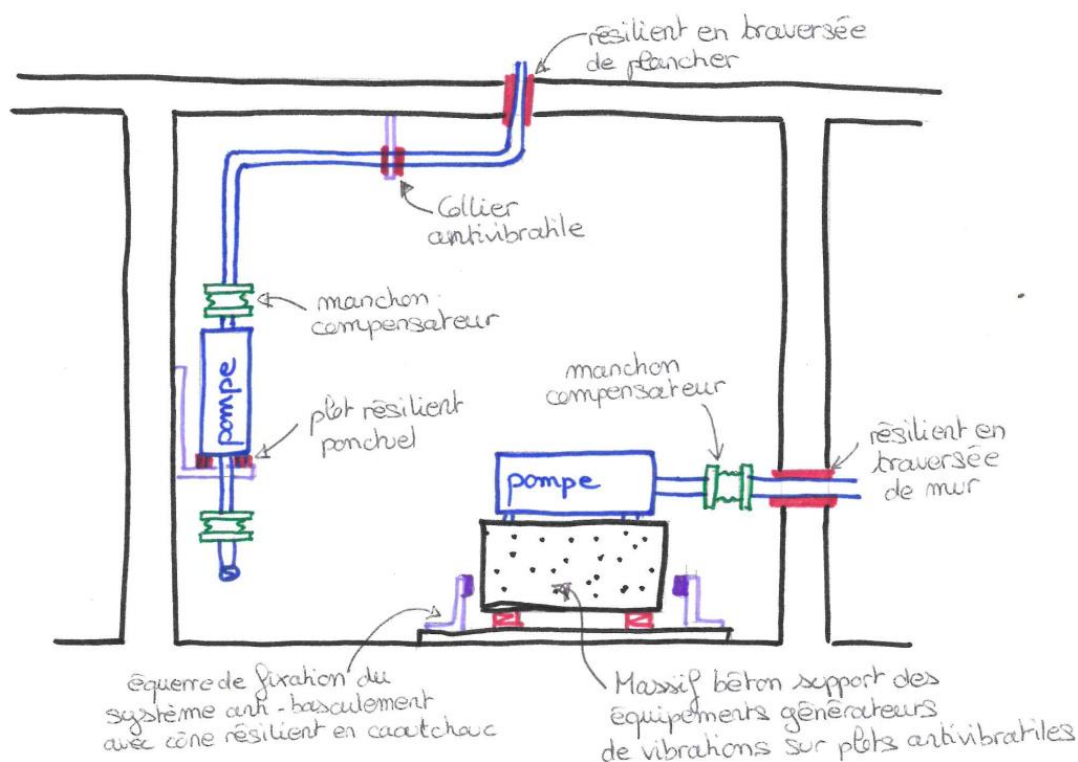 résilient en traversée
de plancher
Collier
antivibratile
manchon
compensateur
pompe
plot résilient
ponctuel
manchon
compensateur
pompe
résilient en
traversée
de mur
équerre de fixation du
système anti-basculement
avec cône résilient en caoutchouc
Massif béton support des
équipements générateurs
de vibrations sur plots antivibratiles